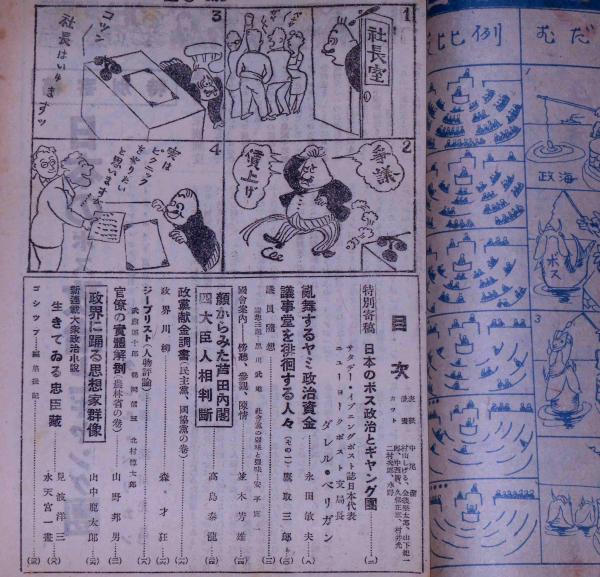 1
社長室
2
爭議
値上げ
3
コツン
社長はいりますッ
4
実は
ピクニック
をやりたい
と思います
目次
特別寄稿 日本のボス政治とギャング團
サタデー・イブニングポスト誌日本代表
ニューヨークポスト支局長
ダレル・ベリガン
亂舞するヤミ政治資金 永田敏夫
議事堂を徘徊する人々(その一) 鷹取三郎
議員隨想
國會案内 傍聽、參観、陳情 並木芳雄
顏からみた芦田内閣
四大臣人相判斷 高島泰龍
政黨献金調書(民主黨、國協黨の巻)
政界川柳 森才狂
ジープリスト(人物評論)
官僚の實體解剖(農林省の巻) 山野邦男
政界に踊る思想家群像 山中鹿太郎
新連載大衆政治小説
生きてゐる忠臣藏 見波洋三
水天宮一晝
ゴシップ 編集後記
比例
むだ
1
政海
ボス
3